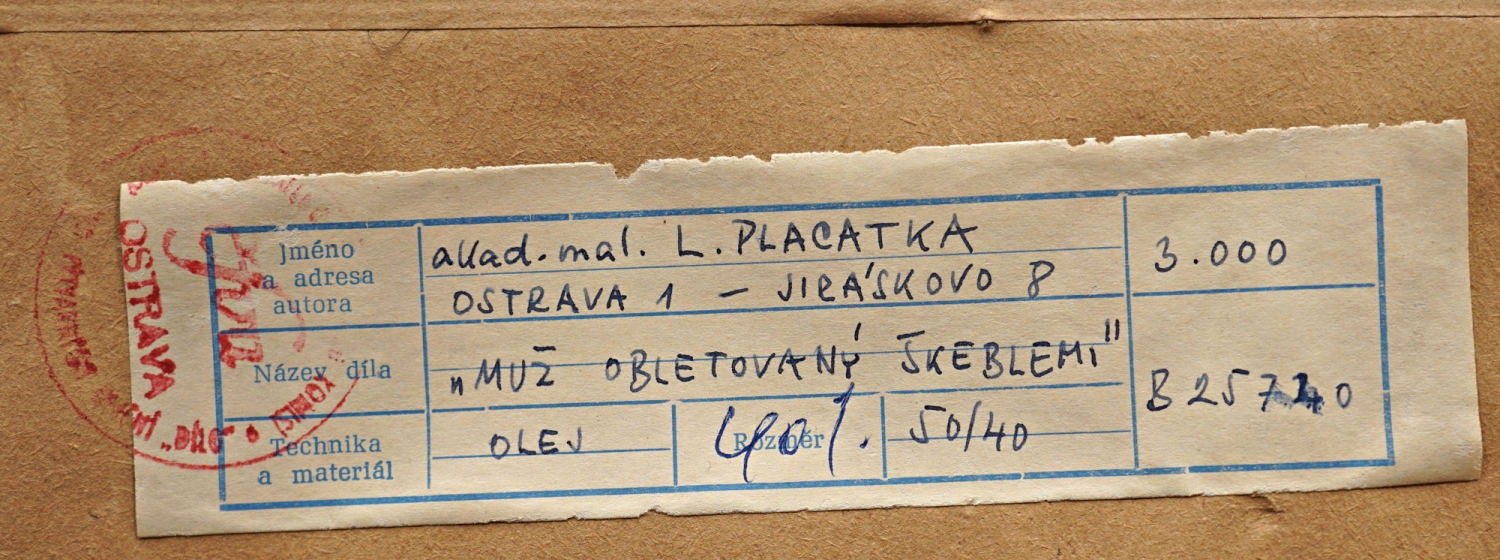 Jméno
a adresa
autora
akad. mal. L. PLACATKA
OSTRAVA 1 – JIRÁSKOVO 8
3.000
Název díla
„MUŽ OBLETOVANÝ ŠKEBLEMI"
Technika
a materiál
OLEJ
Rozměr
50/40
OSTRAVA
"DÍLO"